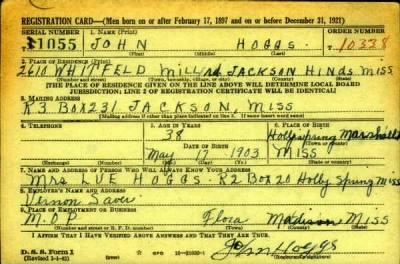 REGISTRATION CARD—(Men born on or after February 17, 1897 and on or before December 31, 1921)
SERIAL NUMBER 1. NAME (Print) ORDER NUMBER
1055 JOHN HOGGS 10338
(First) (Middle) (Last)
2. PLACE OF RESIDENCE (Print)
2610 WHITFEELD Mill Rd JACKSON HINDS MISS
(Number and street) (Town, township, village, or city) (County) (State)
[THE PLACE OF RESIDENCE GIVEN ON THE LINE ABOVE WILL DETERMINE LOCAL BOARD
JURISDICTION; LINE 2 OF REGISTRATION CERTIFICATE WILL BE IDENTICAL]
3. MAILING ADDRESS
R3 BOX 231 JACKSON, MISS
(Mailing address if other than place indicated on line 2. If same insert word same)
4. TELEPHONE 5. AGE IN YEARS 6. PLACE OF BIRTH
38 Holly Spring Marshall
DATE OF BIRTH (Town or county)
May 17 1903 MISS
(Exchange) (Number) (Mo.) (Day) (Yr.) (State or country)
7. NAME AND ADDRESS OF PERSON WHO WILL ALWAYS KNOW YOUR ADDRESS
Mrs HOGGS - R2 Box 20 Holly Spring Miss
8. EMPLOYER'S NAME AND ADDRESS
Vernon Saver
9. PLACE OF EMPLOYMENT OR BUSINESS
M.O.P. Flora Madison MISS
(Number and street or R. F. D. number) (Town) (County) (State)
I AFFIRM THAT I HAVE VERIFIED ABOVE ANSWERS AND THAT THEY ARE TRUE.
D. S. S. Form 1
John Hoggs